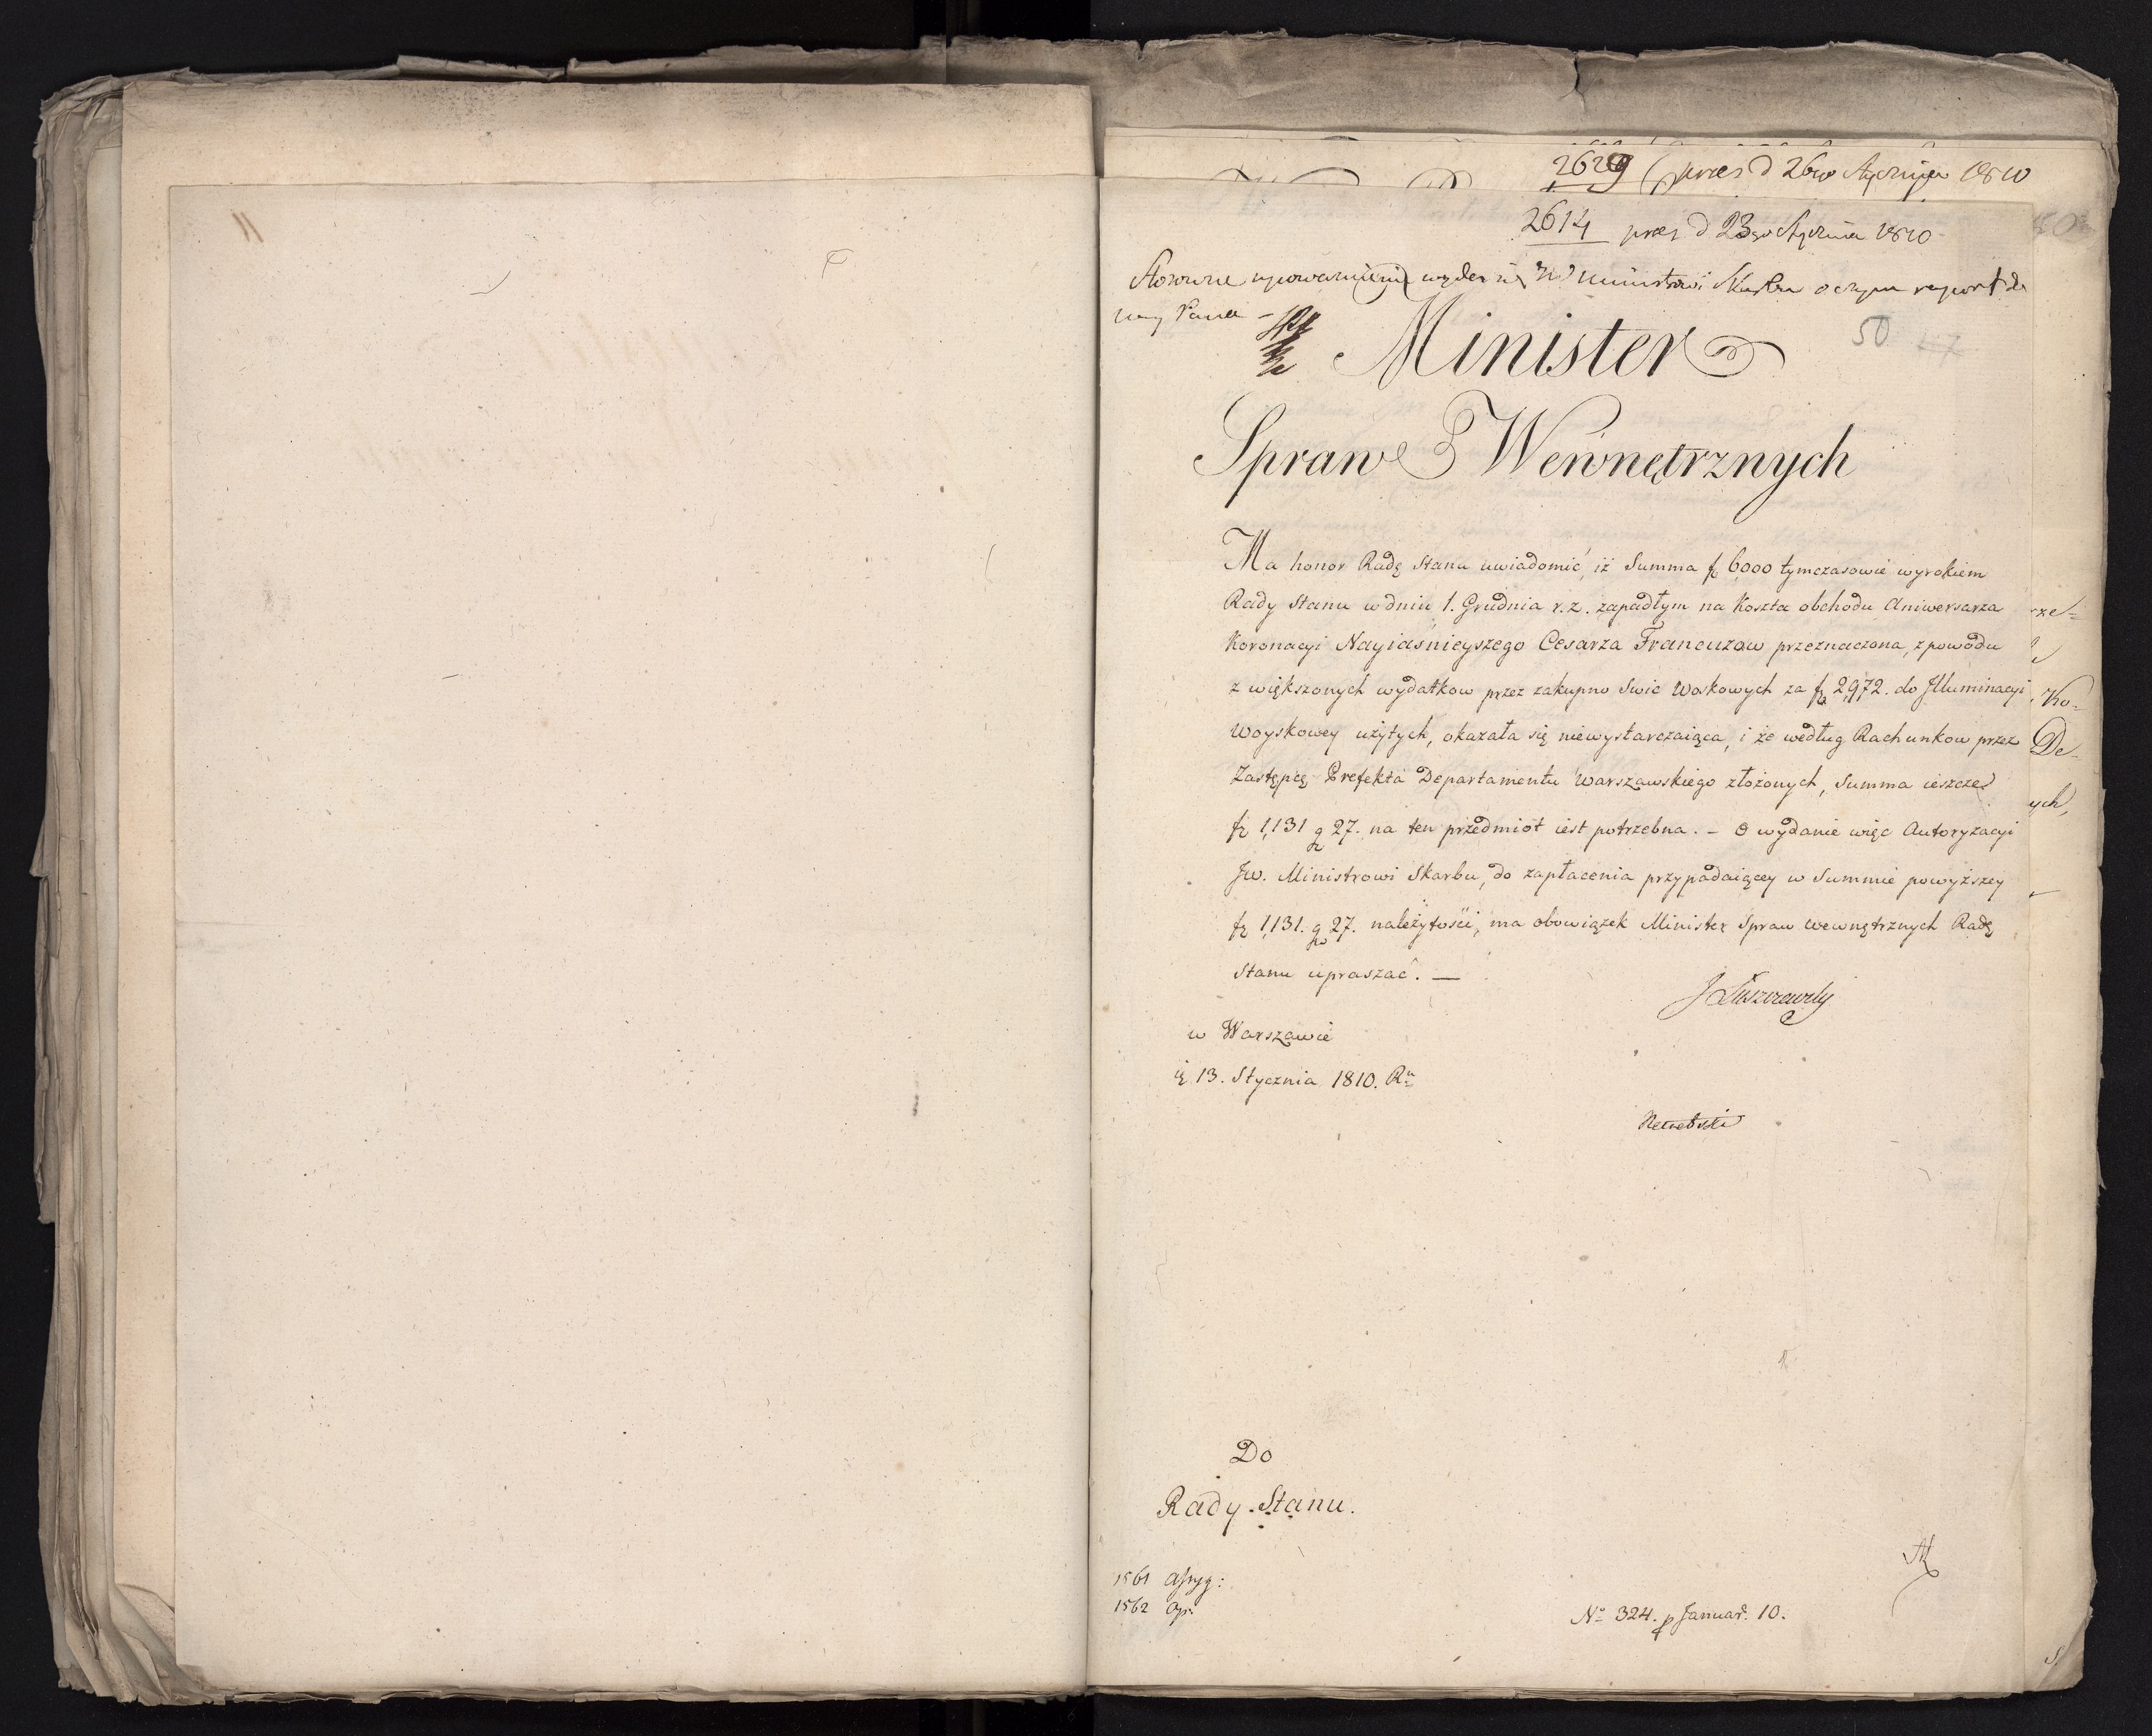 2629 pres d 26go Stycznia 1810
2614 pres d 23go Stycznia 1810
Stosowne upoważnienie wyda się JW Ministrowi Skarbu o czym raport do
nay Pana -
50
Minister
Spraw Wewnętrznych
Ma honor Radę Stanu uwiadomić, iż Summa f 6,000 tymczasowie wyrokiem
Rady Stanu w dniu 1. Grudnia r. z. zapadłym na Koszta obchodu Aniwersarza
Koronacyi Nayiaśnieyszego Cesarza Francuzow przeznaczona, z powodu
z większonych wydatkow przez zakupno Swic Woskowych za fz 2,972. do Jlluminacyi
Woyskowey użytych, okazała się niewystarczaiąca, i że według Rachunkow przez
Zastępcę Prefekta Departamentu Warszawskiego złożonych, Summa ieszcze
fz 1,131 g 27. na ten przedmiot iest potrzebna. – O wydanie więc Autoryzacyi
JW. Ministrowi Skarbu, do zapłacenia przypadaiącey w Summie powyższey
fz 1,131. g 27. należytości, ma obowiązek Minister Spraw Wewnętrznych Radę
Stanu upraszać. —
J Łuszczewski
w Warszawie
13. Stycznia 1810. Ru
Do
Rady Stanu.
1561
1562
No 324. p Januar. 10.
rze-
Ko-
De-
ych,